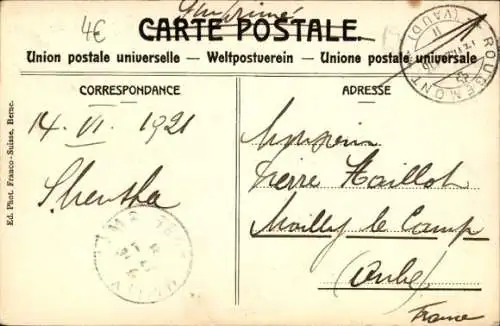 Imprimé
4€
CARTE POSTALE.
Union postale universelle – Weltpostverein – Unione postale universale
ROUGEMONT (VAUD)
CORRESPONDANCE
ADRESSE
14. VI. 1921
Monsieur
Pierre Haillot
Mailly le Camp
(Aube)
France
Ed. Phot. Franco-Suisse, Berne.